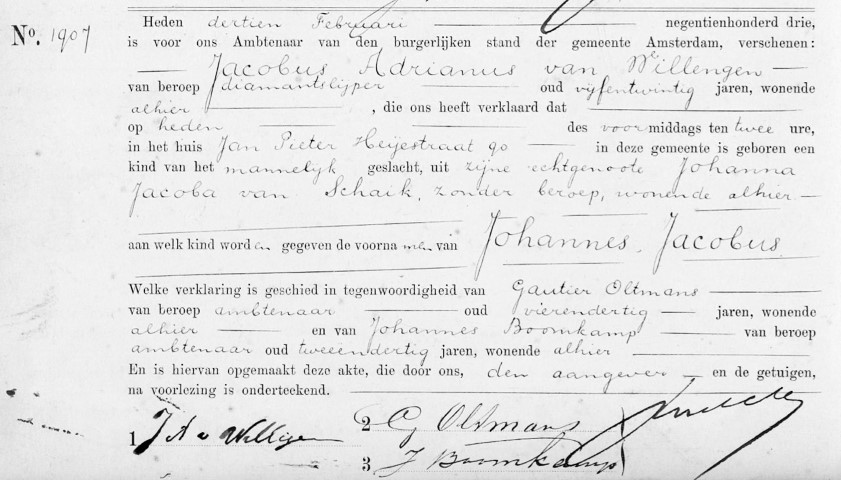 Heden dertien Februari negentienhonderd drie,
No. 1907
is voor ons Ambtenaar van den burgerlijken stand der gemeente Amsterdam, verschenen:
Jacobus Adrianus van Willengen
van beroep diamantslijper oud vijfentwintig jaren, wonende
alhier , die ons heeft verklaard dat
op heden des voormiddags ten twee ure,
in het huis Jan Pieter Heijestraat 90 in deze gemeente is geboren een
kind van het mannelijk geslacht, uit zijne echtgenoote Johanna
Jacoba van Schaik, zonder beroep, wonende alhier
aan welk kind worden gegeven de voornamen van Johannes Jacobus
Welke verklaring is geschied in tegenwoordigheid van Gautier Oltmans
van beroep ambtenaar oud vierendertig jaren, wonende
alhier en van Johannes Boomkamp van beroep
ambtenaar oud tweeendertig jaren, wonende alhier
En is hiervan opgemaakt deze akte, die door ons, den aangever en de getuigen,
na voorlezing is onderteekend.
1 J A v Willigen 2 G Oltmans
3 J Boomkamp